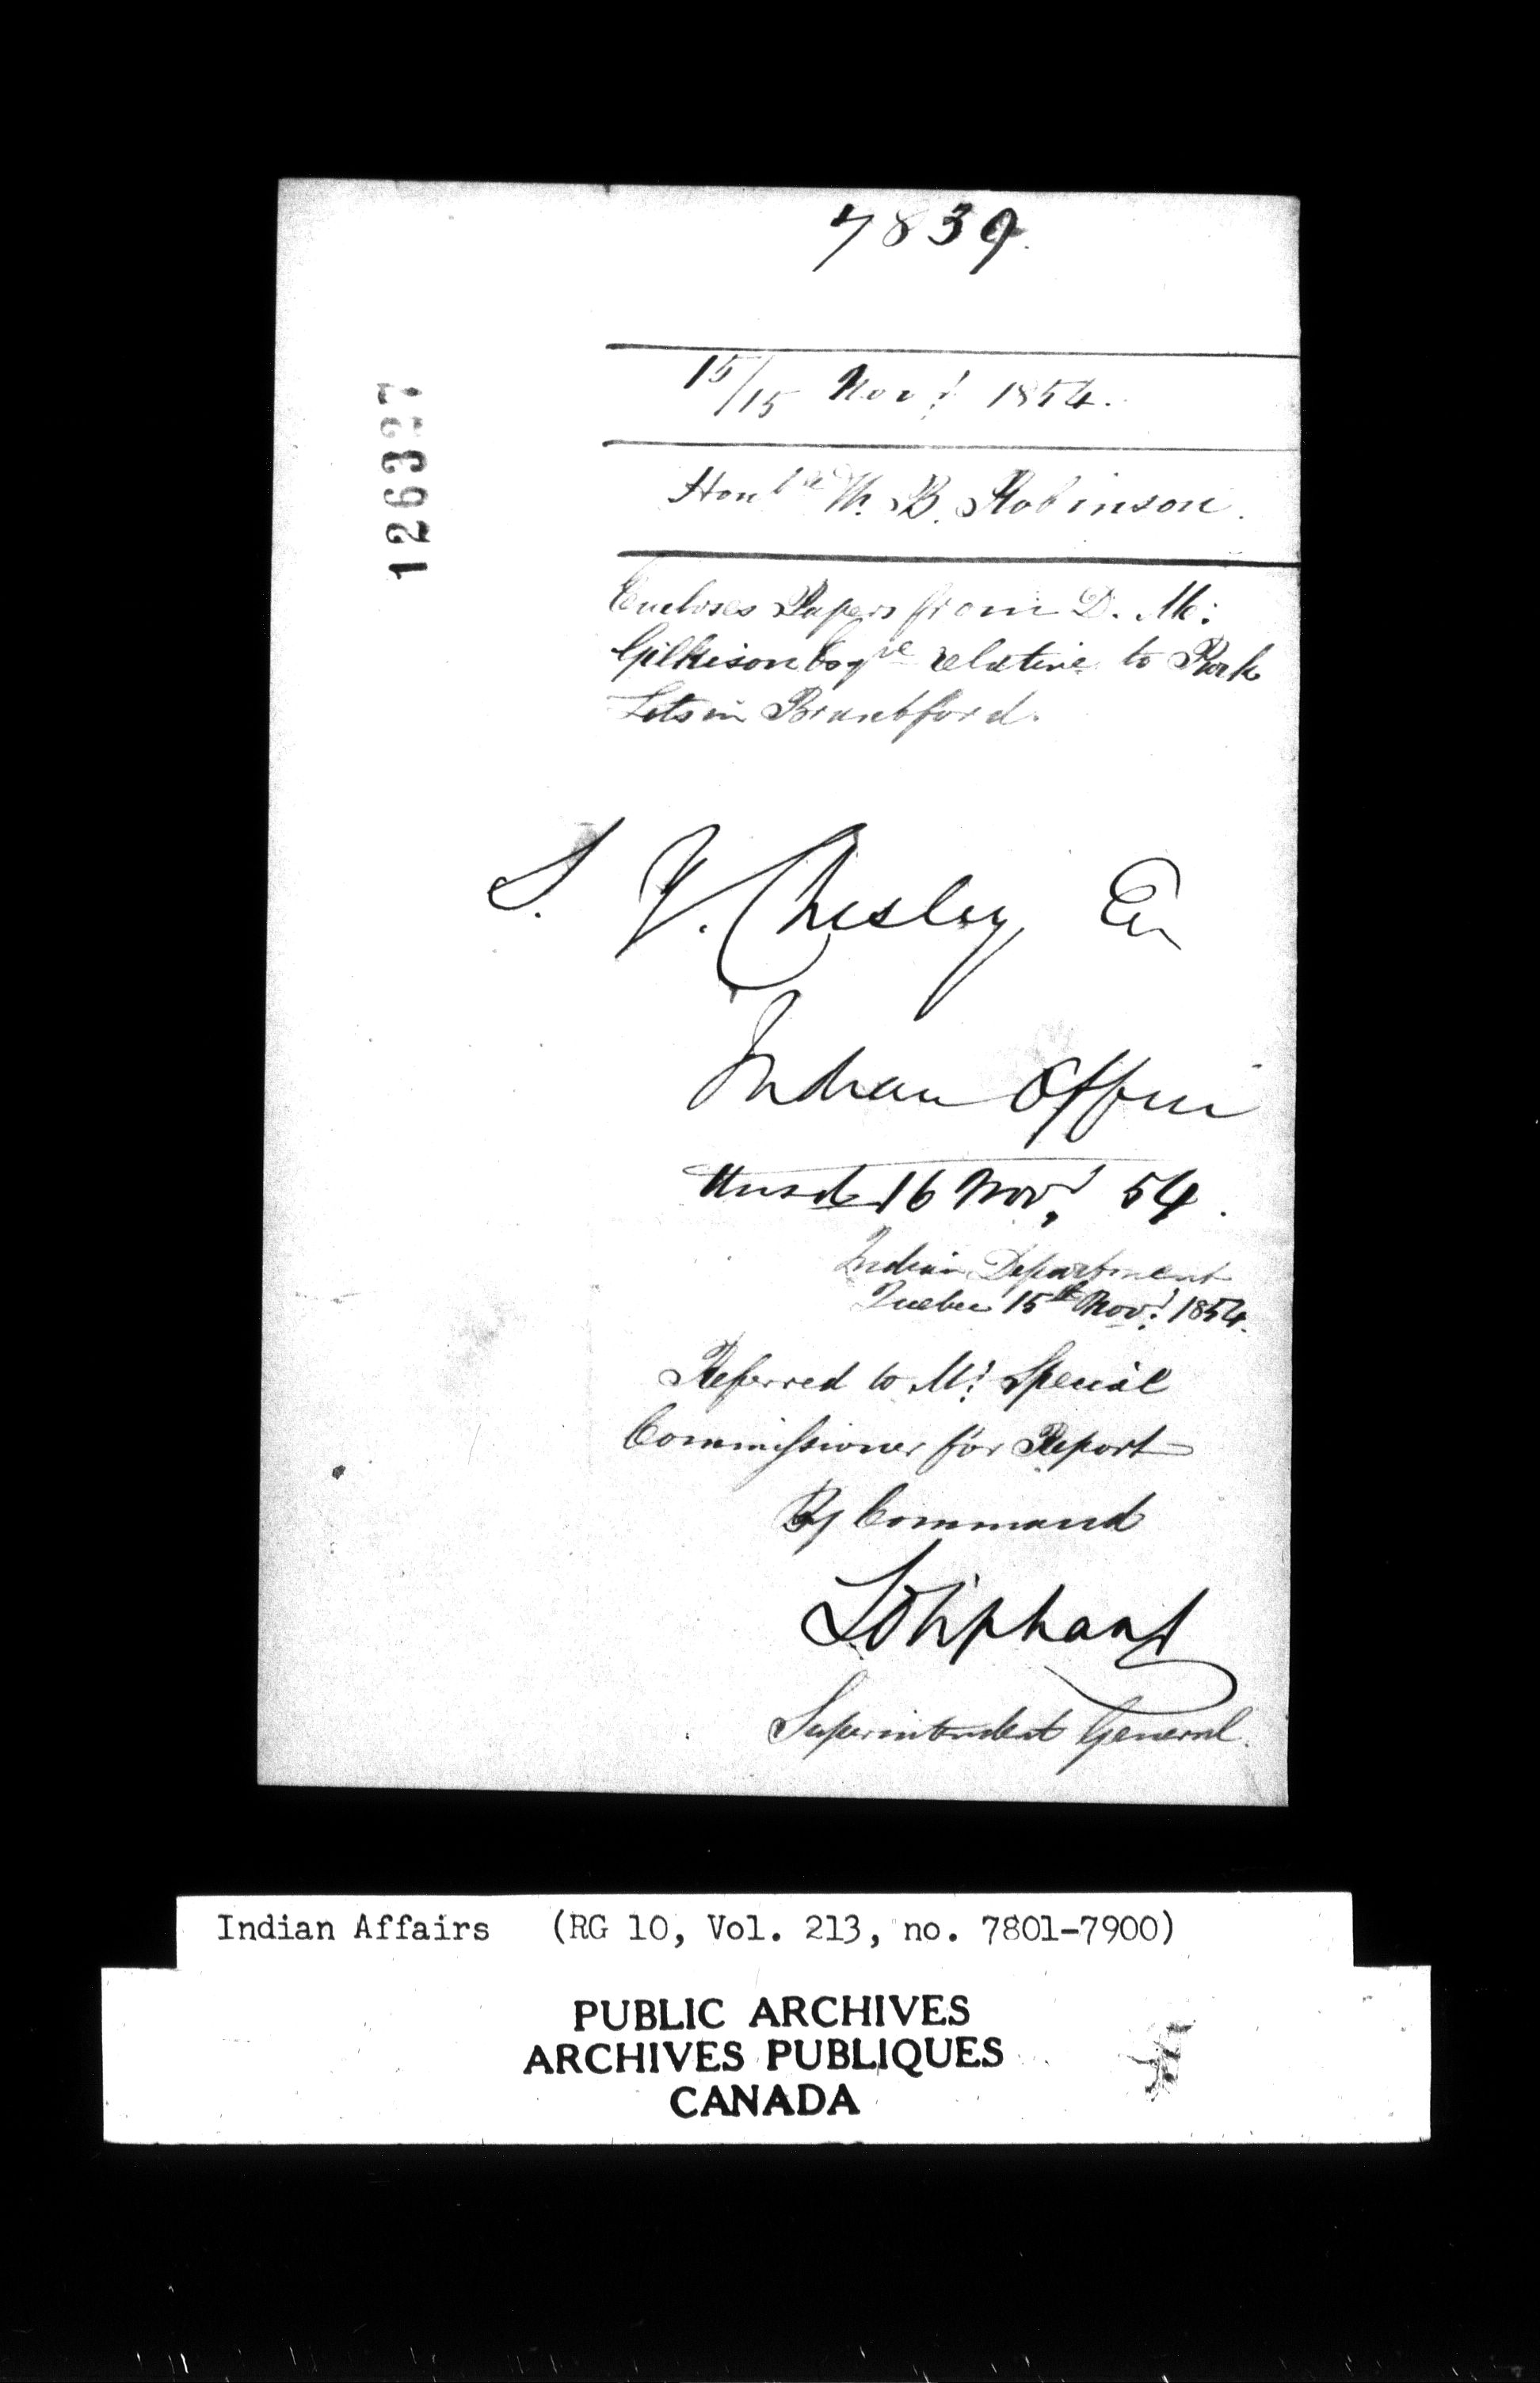 7839.
126327
15/15 Novr 1854.
Honble W. B. Robinson.
Encloses Papers from D. Mc:
Gilkison Esqre relative to Park
Lots in Brantford.
S. Y. Chesley, Er
Indian Office
16 Novr 54.
Indian Department
Quebec 15th Novr 1854.
Referred to Mr Special
Commissioner for Report
By Command
L Oliphant
Superintendent General.
Indian Affairs (RG 10, Vol. 213, no. 7801-7900)
PUBLIC ARCHIVES
ARCHIVES PUBLIQUES
CANADA